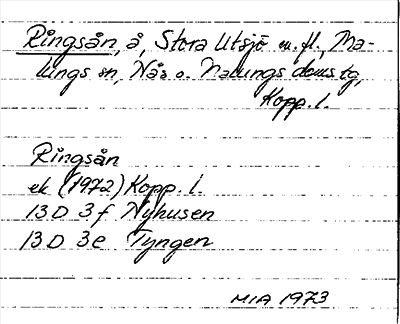 Ringsån, å, Stora Utsjö m.fl., Ma-
lungs sn, Nås o. Malungs doms tg,
Kopp. l.
Ringsån
ek (1972) Kopp. l.
13 D 3 f Nyhusen
13 D 3 e Tyngen
MIA 1973